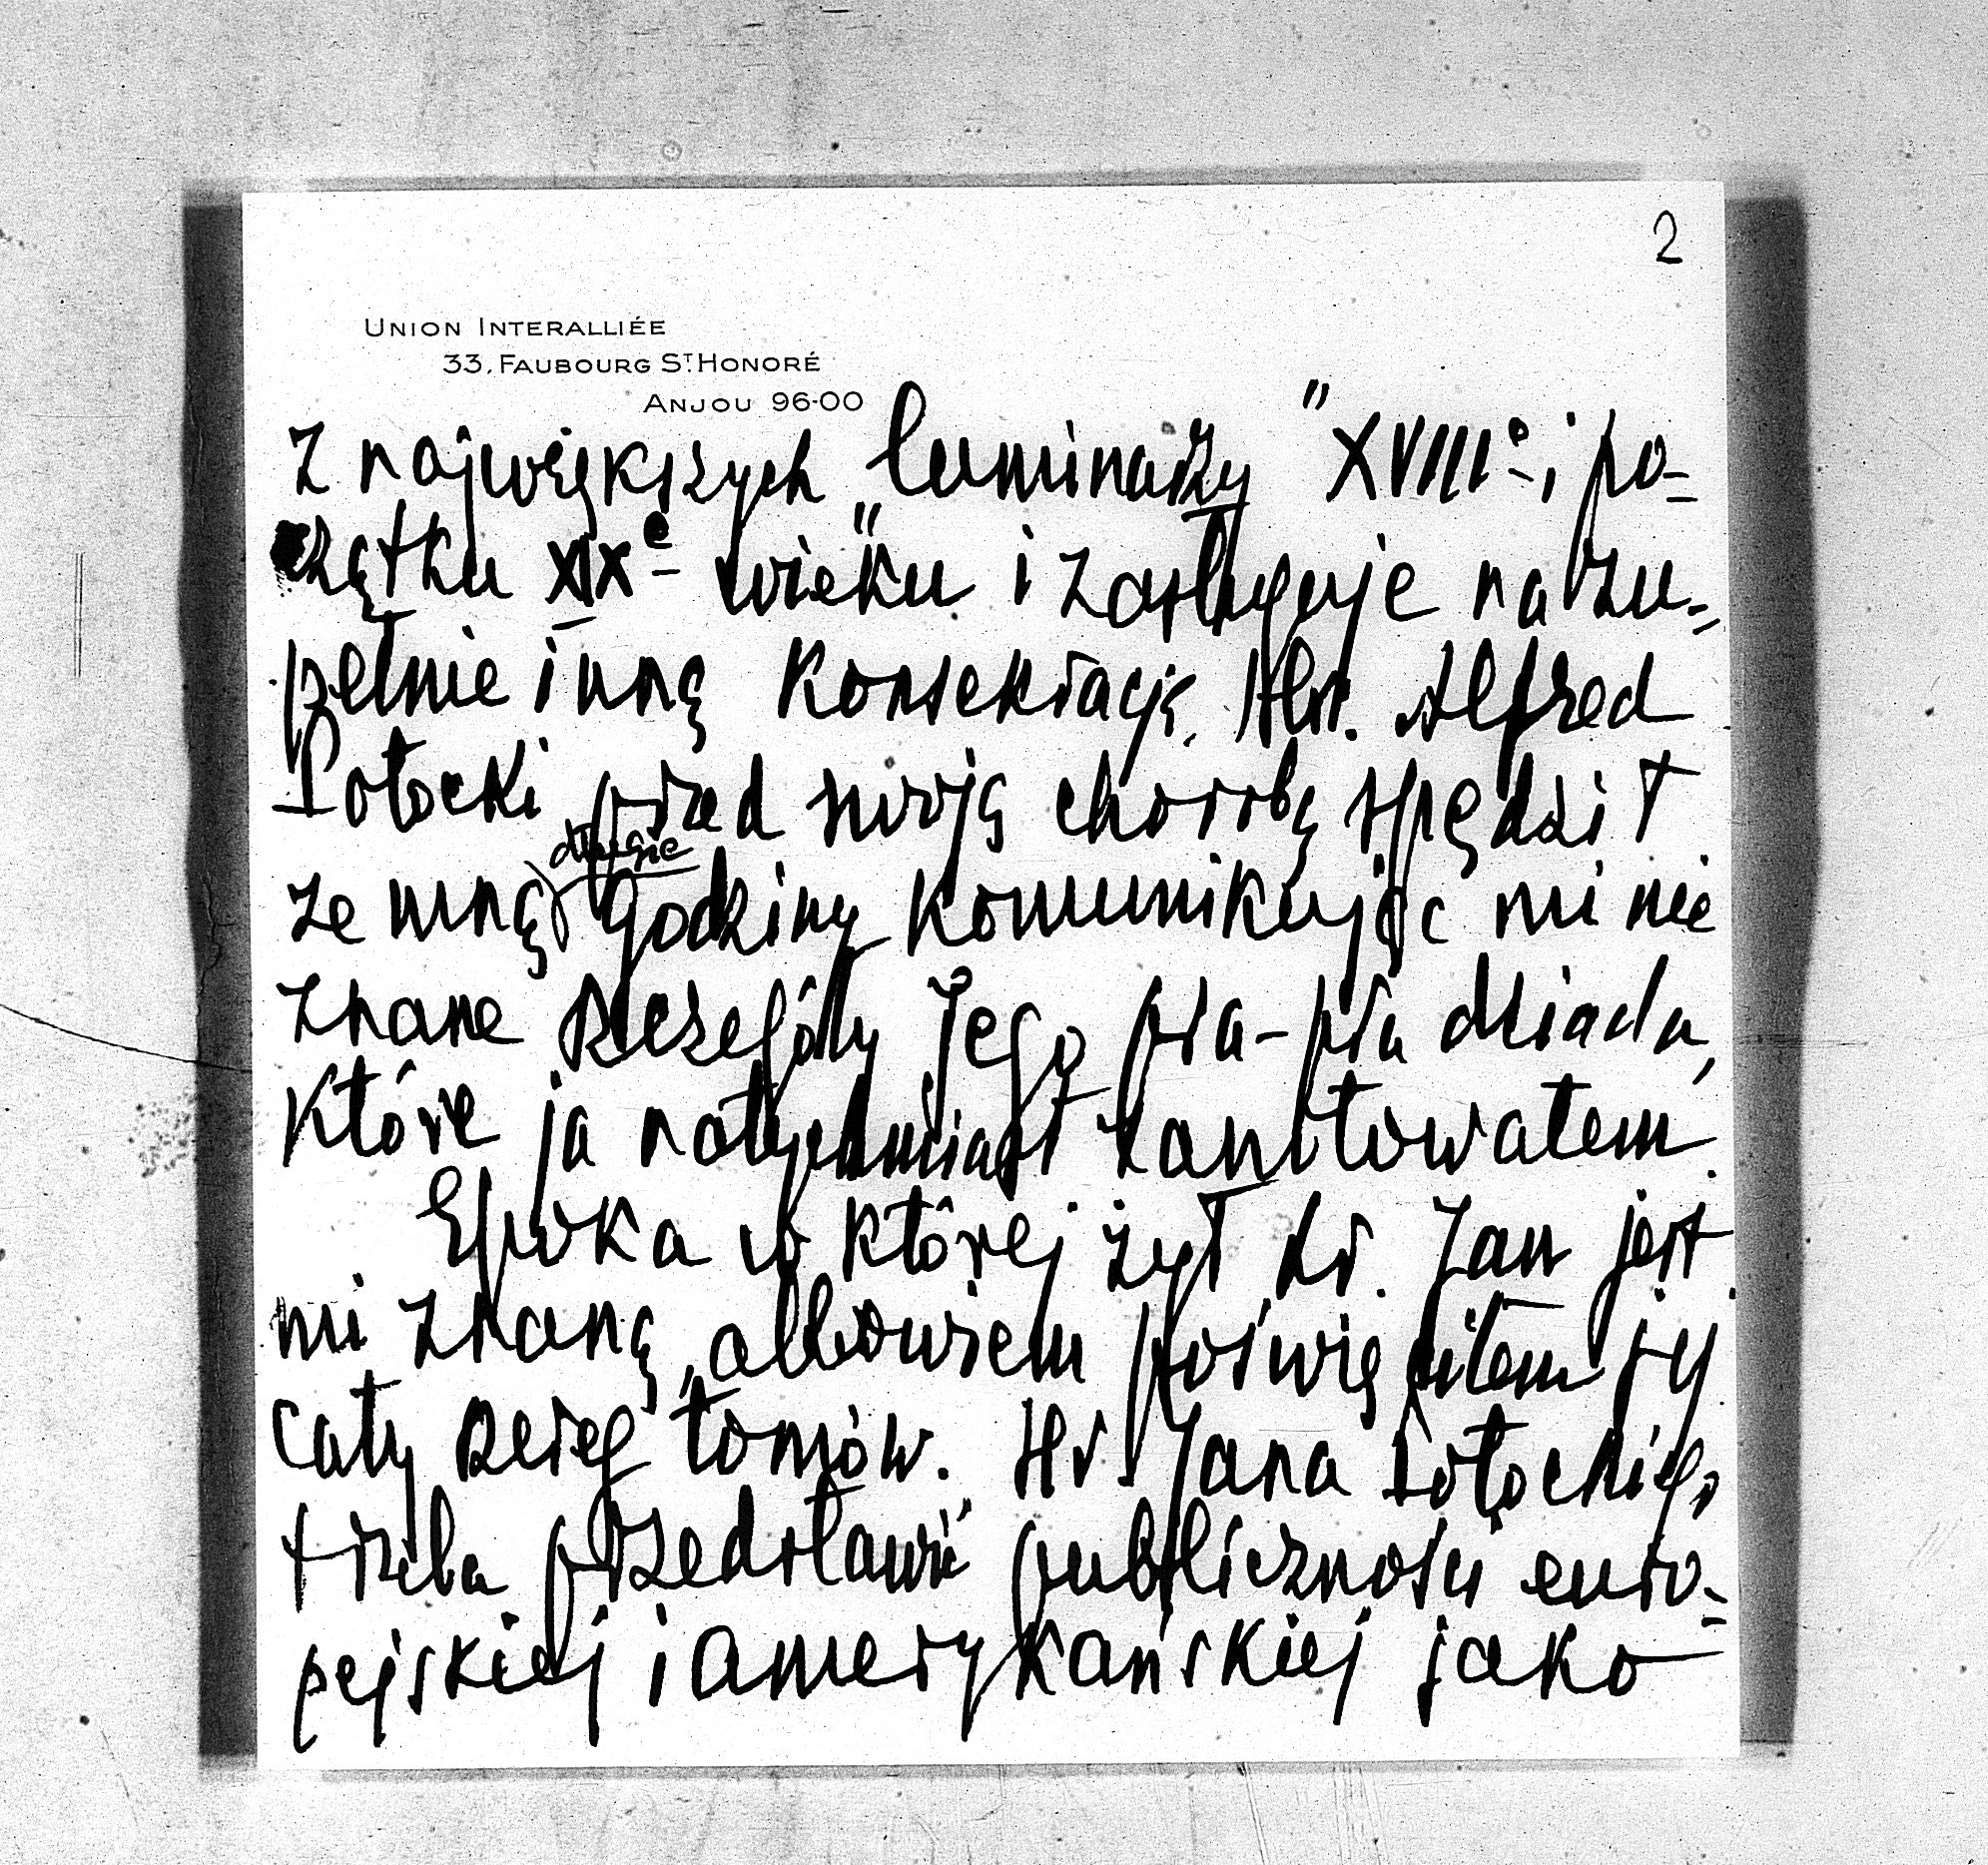 2
UNION INTERALLIÉE
33, FAUBOURG ST. HONORÉ
ANJOU 96-00
z największych „luminarzy" XVIIIe i po-
czątku XIXe wieku i zasługuje na zu-
pełnie inną Konsekrację. Hr. Alfred
Potocki przed swoją chorobą spędził
ze mną długie godziny komunikując mi nie
znane szczegóły Jego pra-pra dziada,
które ja natychmiast zanotowałem.
Epoka w której żył hr. Jan jest
mi znaną, albowiem poświęciłem jej
cały szereg tomów. Hr. Jana Potockiego
trzeba przedstawić publiczności euro-
pejskiej i amerykańskiej jako